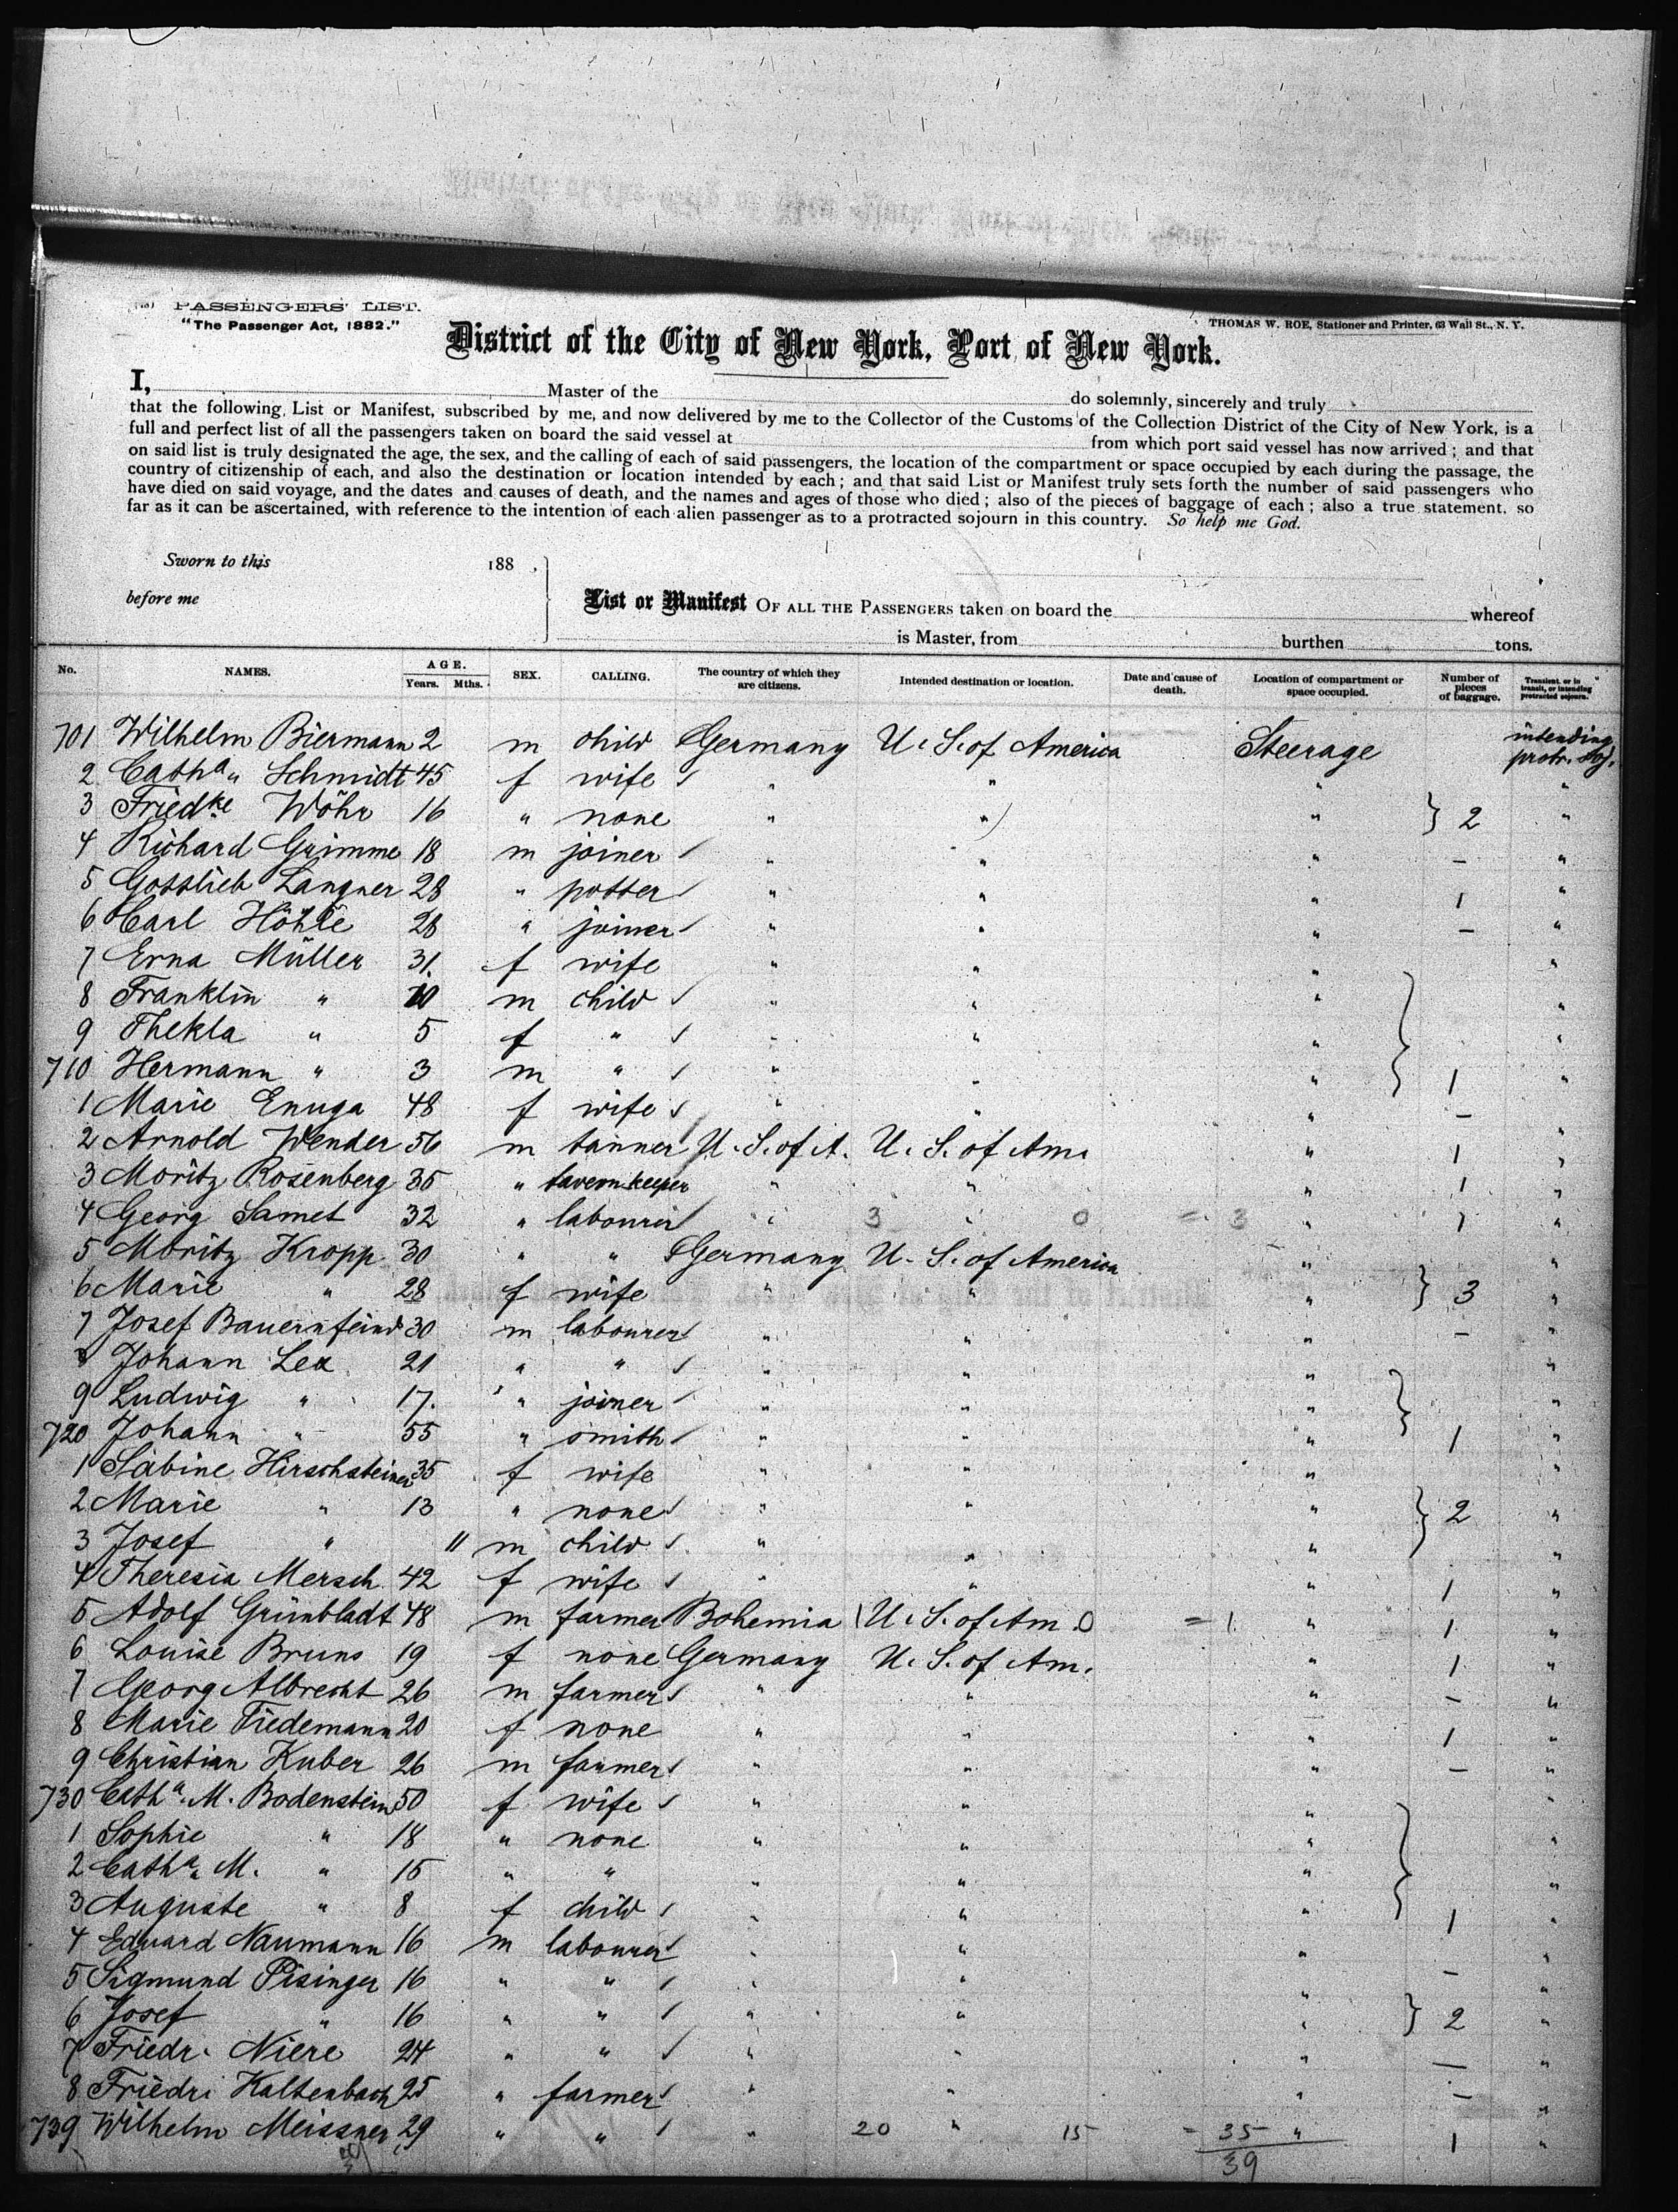 PASSENGERS' LIST.
"The Passenger Act, 1882."
THOMAS W. ROE, Stationer and Printer, 63 Wall St., N. Y.
District of the City of New York, Port of New York.
I, Master of the do solemnly, sincerely and truly
that the following List or Manifest, subscribed by me, and now delivered by me to the Collector of the Customs of the Collection District of the City of New York, is a
full and perfect list of all the passengers taken on board the said vessel at from which port said vessel has now arrived; and that
on said list is truly designated the age, the sex, and the calling of each of said passengers, the location of the compartment or space occupied by each during the passage, the
country of citizenship of each, and also the destination or location intended by each; and that said List or Manifest truly sets forth the number of said passengers who
have died on said voyage, and the dates and causes of death, and the names and ages of those who died; also of the pieces of baggage of each; also a true statement, so
far as it can be ascertained, with reference to the intention of each alien passenger as to a protracted sojourn in this country. So help me God.
Sworn to this 188 .
before me
List or Manifest OF ALL THE PASSENGERS taken on board the whereof
is Master, from burthen tons.
No. NAMES. AGE. Years. Mths. SEX. CALLING. The country of which they are citizens. Intended destination or location. Date and cause of death. Location of compartment or space occupied. Number of pieces of baggage. Transient, or in transit, or intending protracted sojourn.
701 Wilhelm Biermann 2 m child Germany U. S. of America Steerage intending protr. soj.
2 Cath.a Schmidt 45 f wife " " " "
3 Friedke Wöhr 16 " none " " " 2 "
4 Richard Grimme 18 m joiner " " " – "
5 Gottlieb Langner 28 " potter " " " 1 "
6 Carl Höhle 28 " joiner " " " – "
7 Erna Müller 31 f wife " " " "
8 Franklin " 10 m child " " " "
9 Thekla " 5 f " " " " "
710 Hermann " 3 m " " " " 1 "
1 Marie Enuga 48 f wife " " " – "
2 Arnold Wender 56 m tanner U. S. of A. U. S. of Am. " 1 "
3 Moritz Rosenberg 35 " tavernkeeper " " " 1 "
4 Georg Samet 32 " labourer " 3 " 0 = 3 " 1 "
5 Moritz Kropp 30 " " Germany U. S. of America " "
6 Marie " 28 f wife " " " 3 "
7 Josef Bauernfeind 30 m labourer " " " – "
8 Johann Lex 21 " " " " " "
9 Ludwig " 17 " joiner " " " "
720 Johann " 55 " smith " " " 1 "
1 Sabine Hirschsteiner 35 f wife " " " "
2 Marie " 13 " none " " " 2 "
3 Josef " 11 m child " " " "
4 Theresia Mersch 42 f wife " " " 1 "
5 Adolf Grünbladt 48 m farmer Bohemia 1 U. S. of Am. 0 = 1 " 1 "
6 Louise Bruns 19 f none Germany U. S. of Am. " 1 "
7 Georg Albrecht 26 m farmer " " " – "
8 Marie Tiedemann 20 f none " " " 1 "
9 Christian Kuber 26 m farmer " " " – "
730 Cath.a M. Bodenstein 50 f wife " " " "
1 Sophie " 18 " none " " " "
2 Cath.a M. " 15 " " " " " "
3 Auguste " 8 f child " " " 1 "
4 Eduard Naumann 16 m labourer " " " "
5 Sigmund Pisinger 16 " " " " " – "
6 Josef " 16 " " " " " 2 "
7 Friedr. Niere 24 " " " " " – "
8 Friedr. Kaltenbach 25 " farmer " " " – "
739 Wilhelm Meissner 29 " " " 20 " 15 = 35 " 1 "
39